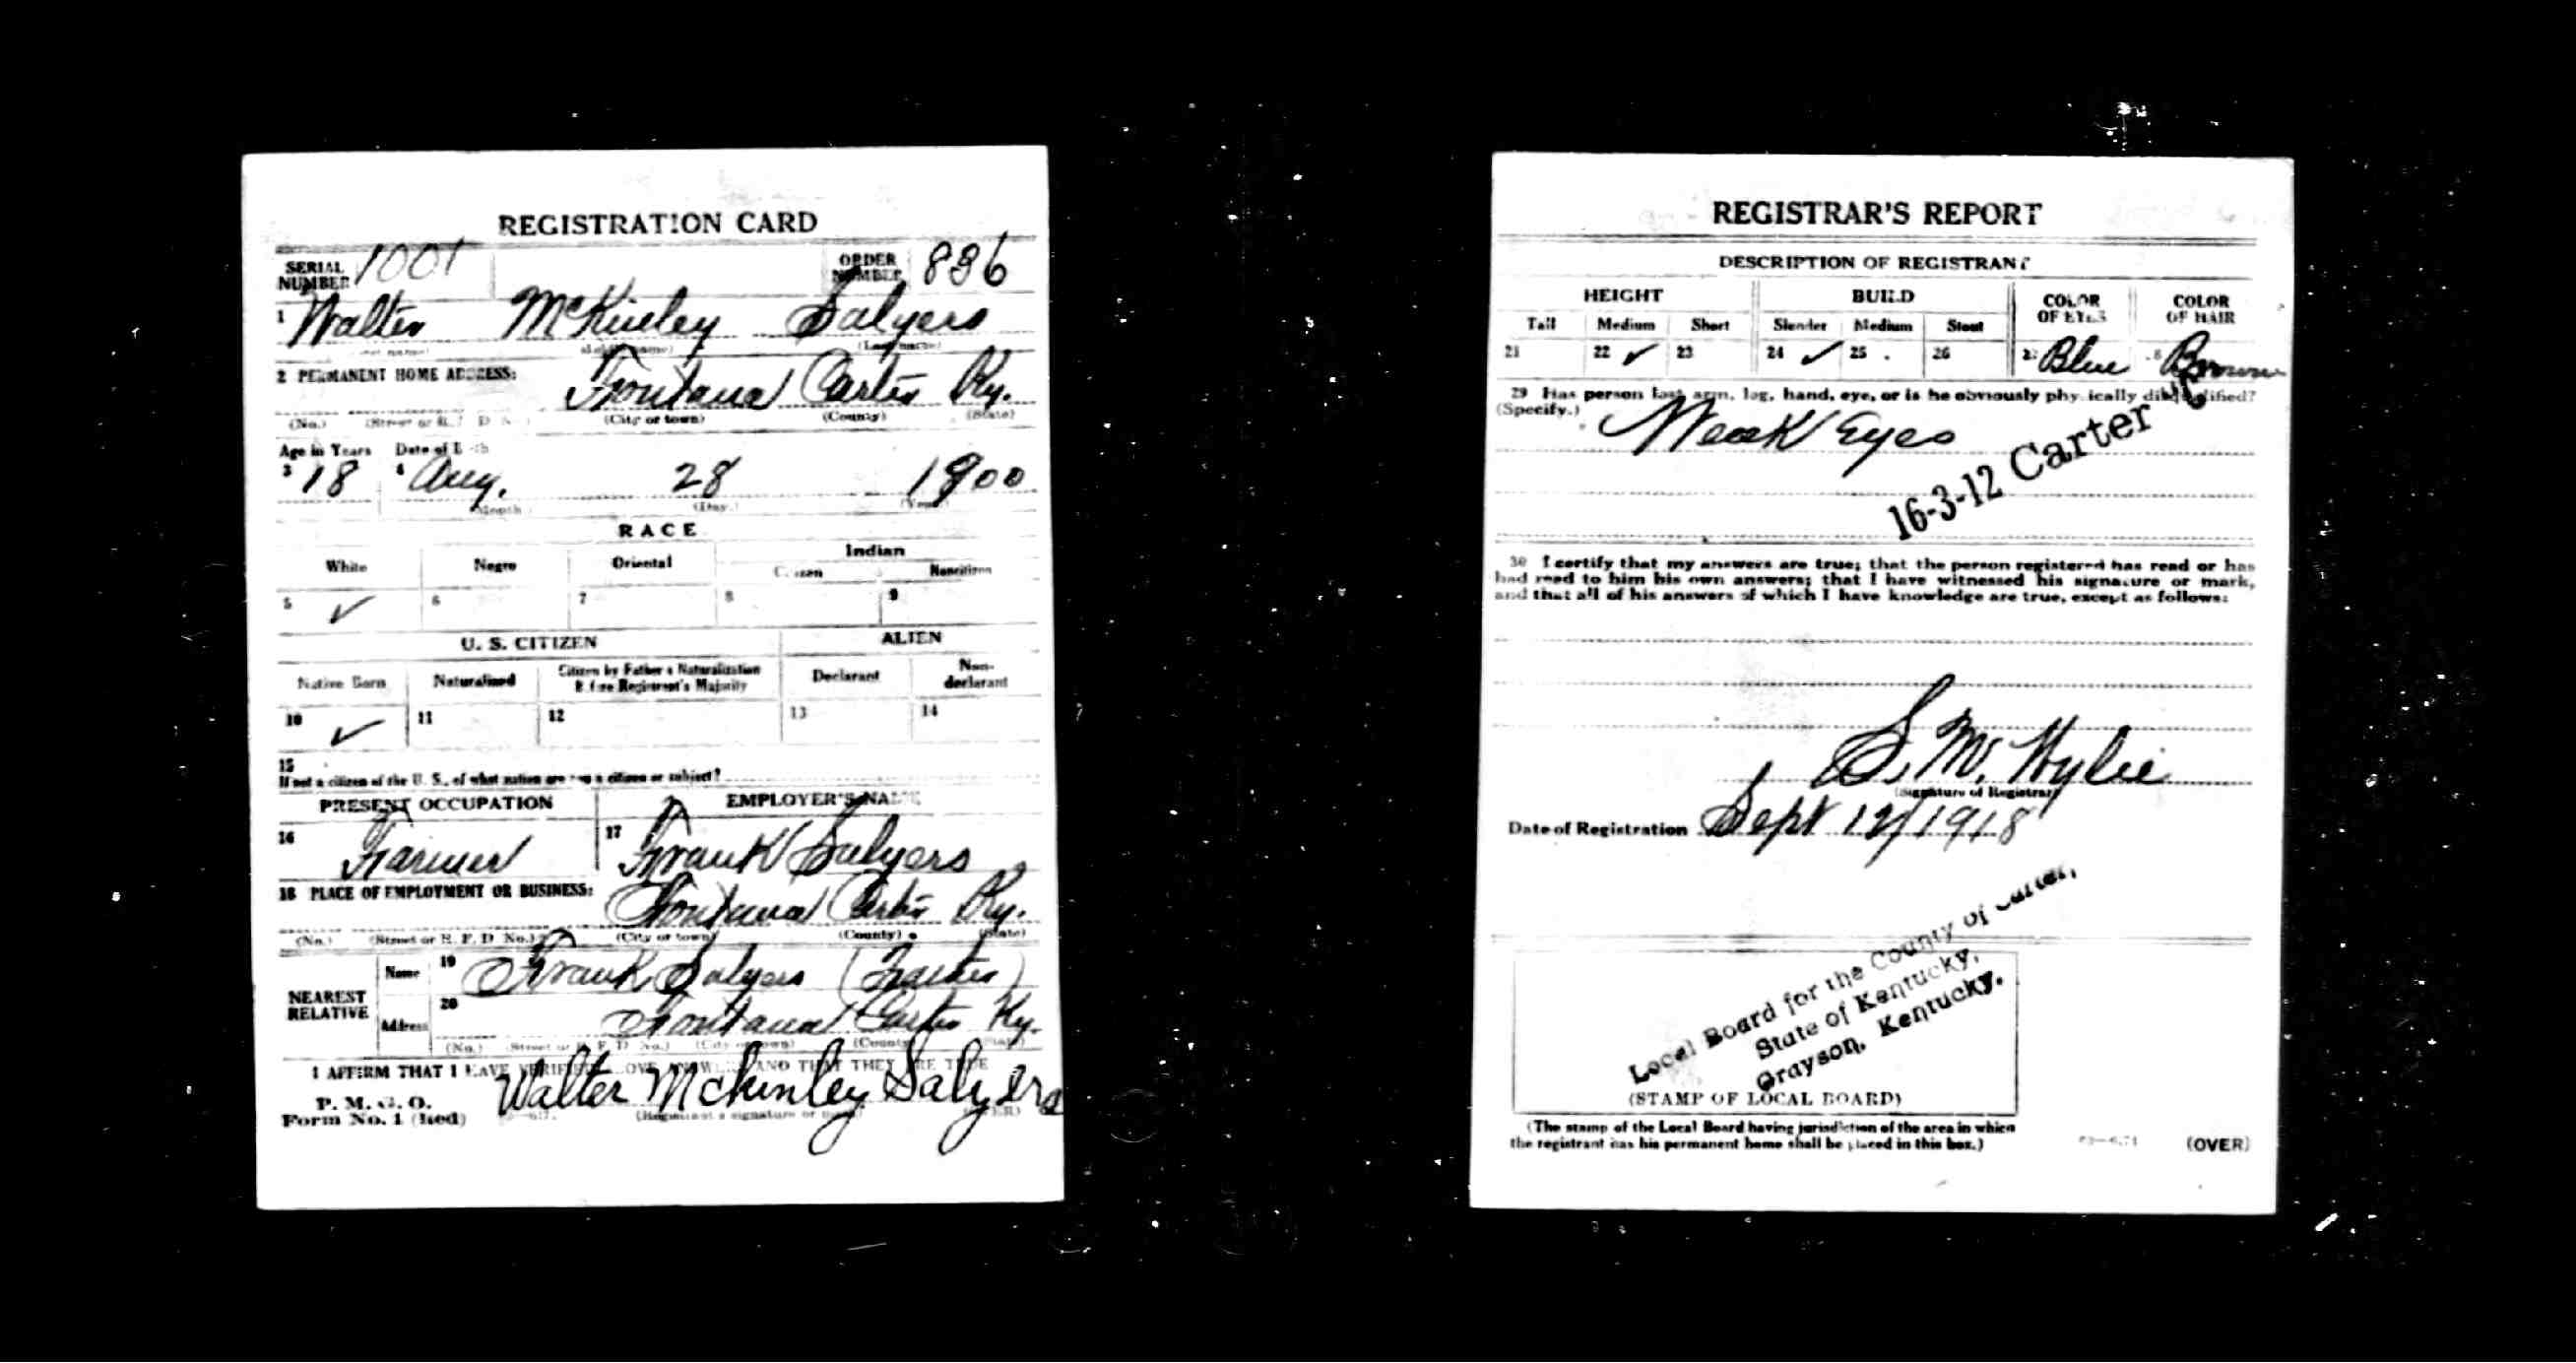 REGISTRATION CARD
SERIAL NUMBER 1001 ORDER NUMBER 836
1 Walter McKinley Salyers
(Last name)
2 PERMANENT HOME ADDRESS: Fontana Carter Ky.
(No.) (City or town) (County) (State)
Age in Years Date of
3 18 4 Aug. 28 1900
(Month) (Day.) (Year)
RACE
White Negro Oriental Indian
Citizen Noncitizen
5 ✓ 6 7 8 9
U. S. CITIZEN ALIEN
Native Born Naturalized Citizen by Father's Naturalization Before Registrant's Majority Declarant Non-declarant
10 ✓ 11 12 13 14
15
If not a citizen of the U. S., of what nation are you a citizen or subject?
PRESENT OCCUPATION EMPLOYER'S NAME
16 Farmer 17 Frank Salyers
18 PLACE OF EMPLOYMENT OR BUSINESS: Fontana Carter Ky.
(No.) (Street or R. F. D. No.) (City or town) (County) (State)
NEAREST RELATIVE Name 19 Frank Salyers (Father)
Address 20 Fontana Carter Ky.
(No.) (Street or R. F. D. No.) (City or town) (County) (State)
I AFFIRM THAT I HAVE VERIFIED ABOVE ANSWERS AND THAT THEY ARE TRUE
P. M. G. O.
Form No. 1 (Red) Walter Mckinley Salyers
(Registrant's signature or mark)
REGISTRAR'S REPORT
DESCRIPTION OF REGISTRANT
HEIGHT BUILD COLOR OF EYES COLOR OF HAIR
Tall Medium Short Slender Medium Stout
21 22 ✓ 23 24 ✓ 25 26 27 Blue 28 Brown
29 Has person lost arm, leg, hand, eye, or is he obviously physically disqualified?
(Specify.) Weak Eyes
16-3-12 Carter C
30 I certify that my answers are true; that the person registered has read or has
had read to him his own answers; that I have witnessed his signature or mark,
and that all of his answers of which I have knowledge are true, except as follows:
S. M. Wylie
(Signature of Registrar)
Date of Registration Sept 12/1918
Local Board for the County of Carter,
State of Kentucky,
Grayson, Kentucky.
(STAMP OF LOCAL BOARD)
(The stamp of the Local Board having jurisdiction of the area in which
the registrant has his permanent home shall be placed in this box.)
(OVER)